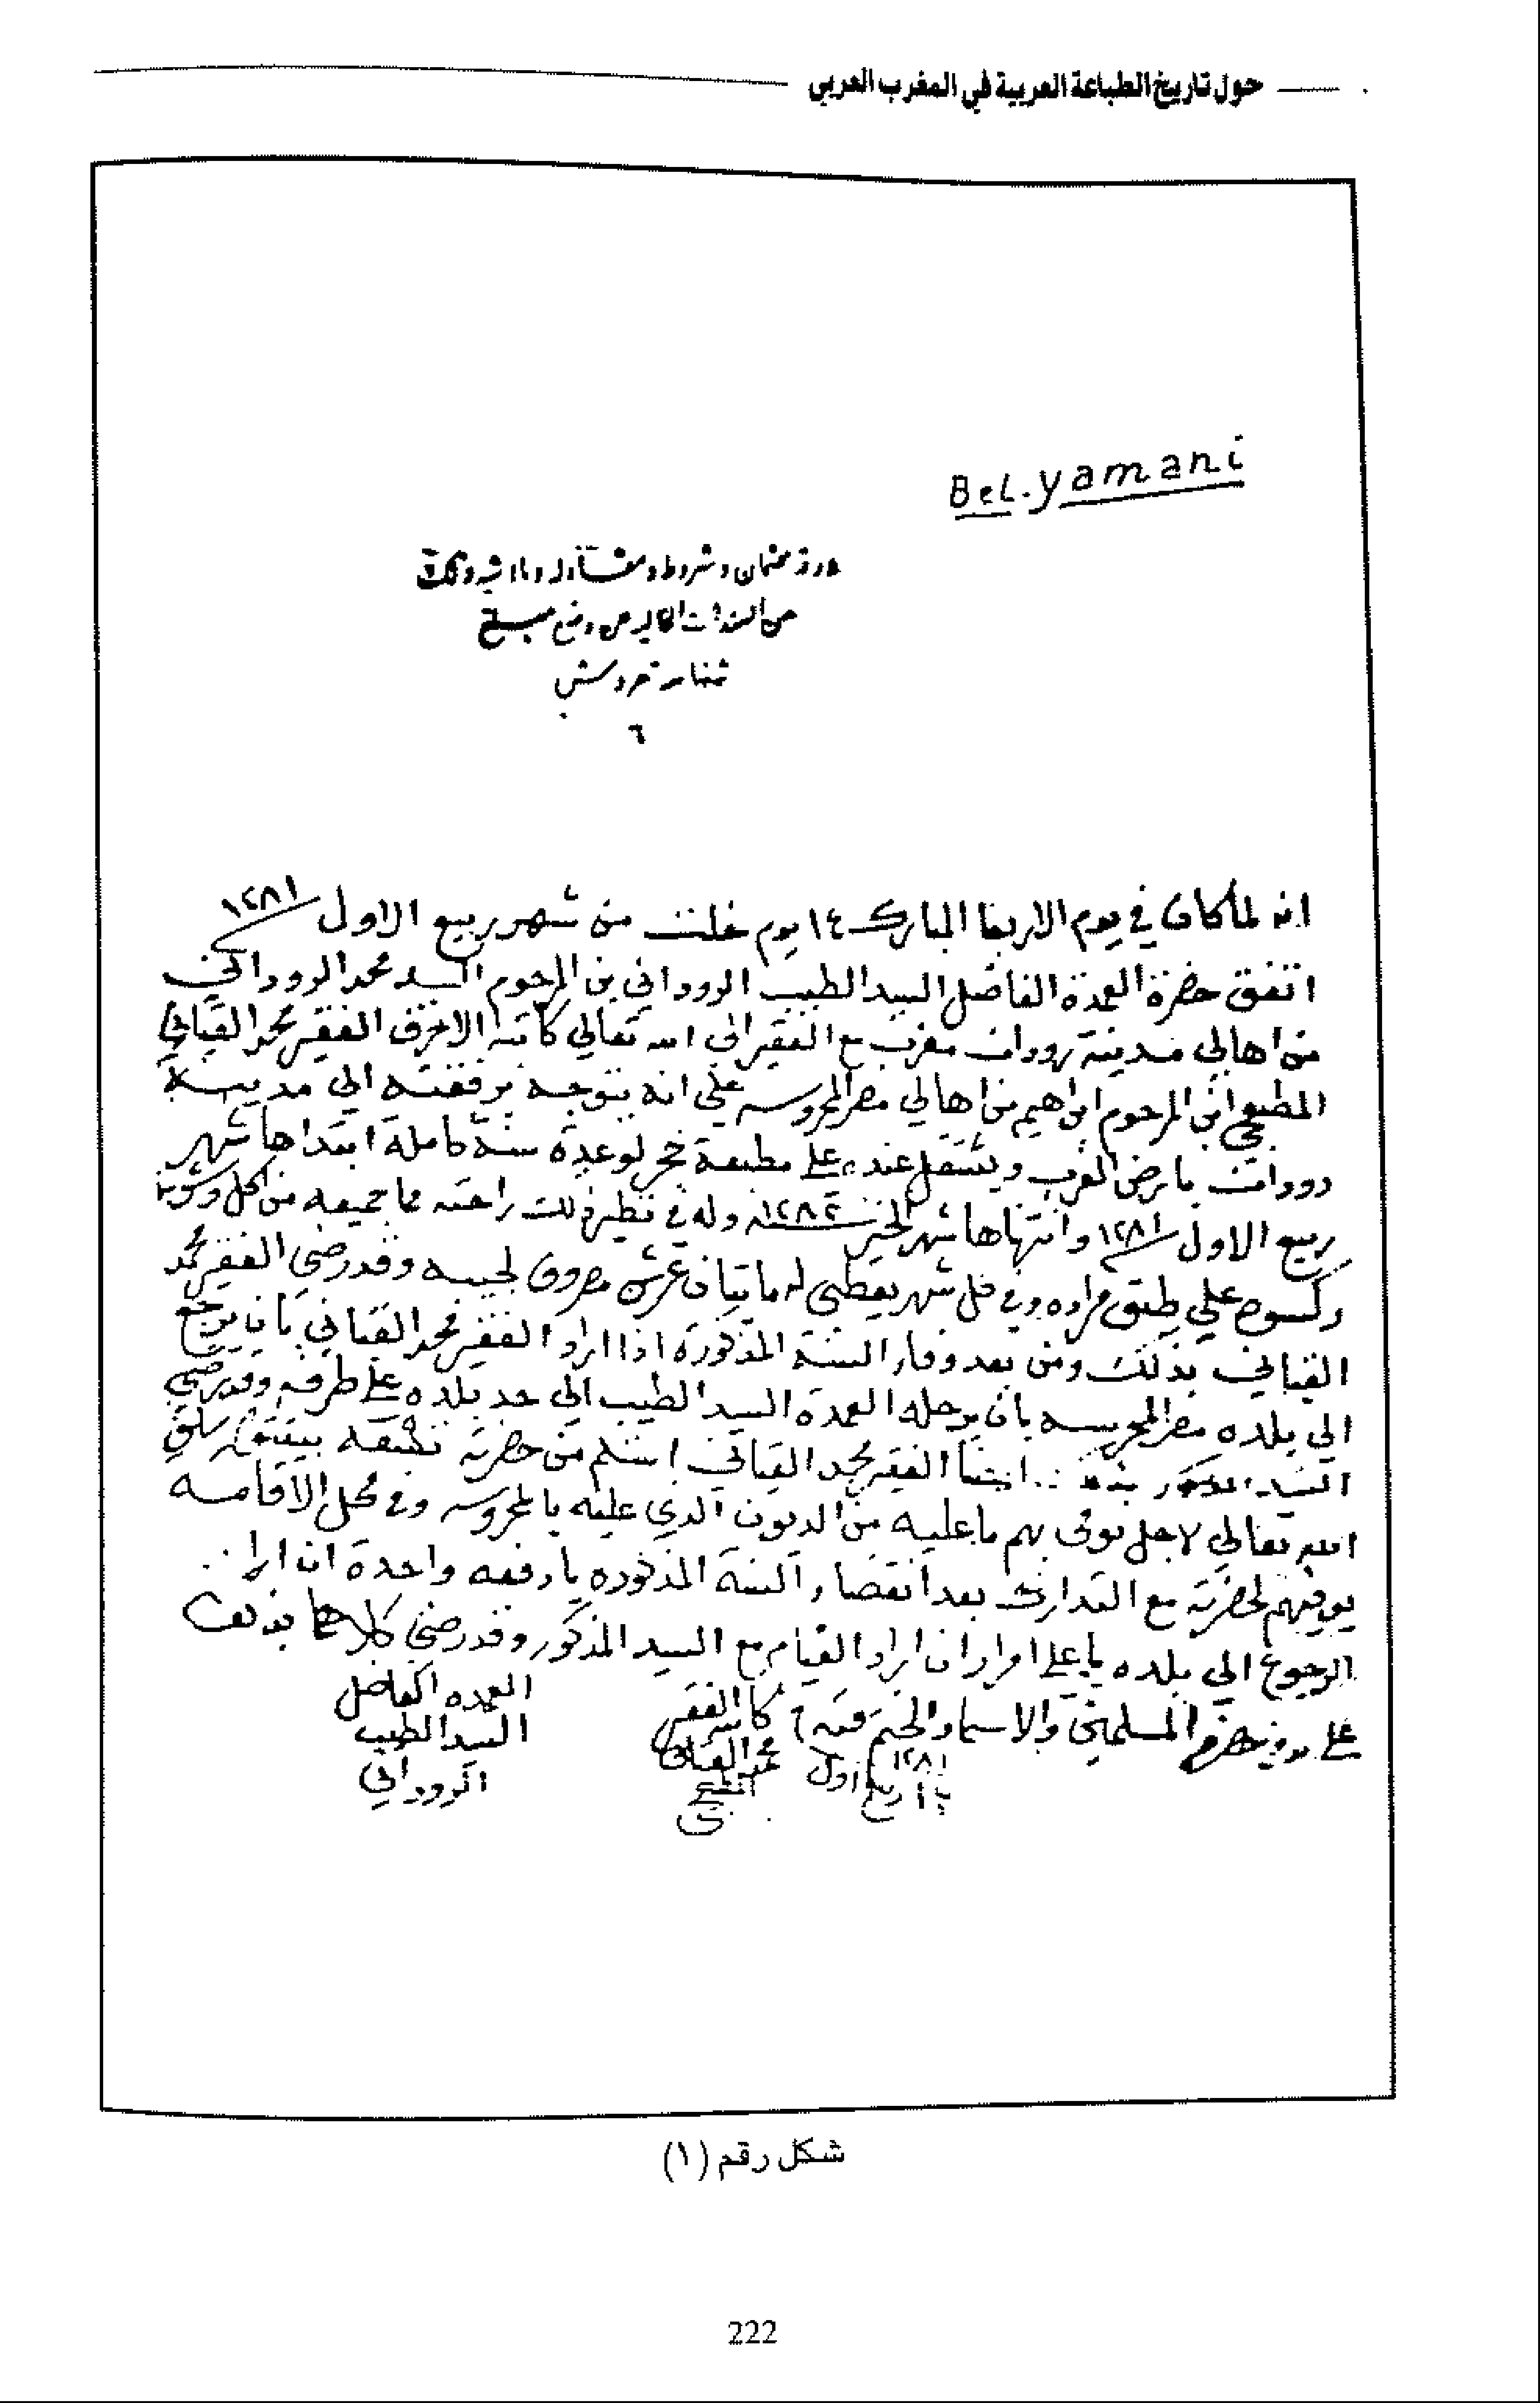 حول تاريخ الطباعة العربية في المغرب العربي
Bel.yamani
٦
انه لما كان في يوم الاربعا المبارك ١٤ يوم خلت من شهر ربيع الاول ١٢٨١
اتفق حضرة العمدة الفاضل السيد الطيب الروداني بن المرحوم السيد محمد الروداني
من اهالي مدينة رودان مغرب مع الفقير الى الله تعالي كاتبه الاحرف الفقير محمد القباني
المطبعجي ابن المرحوم ابراهيم من اهالي مصر المحروسه على انه يتوجه برفقته الي مدينة
رودانت بارض الغرب ويشتغل عنده على مطبعة حجر لوعدة سنة كاملة ابتداها شهر
ربيع الاول ١٢٨١ وانتهاها شهر ١٢٨٢ وله في نظير ذلك راحته مما جميعه من اكل وشرب
وكسوه علي طبق مراده وفي كل شهر يعطى له مايتان غرش مصروف لجيبه وقد رضي الفقير محمد
القباني بذلك ومن بعد وفاء السنة المذكورة اذا اراد الفقير محمد القباني بان يرجع
الي بلده مصر المحروسه بان يرحله العمدة السيد الطيب الي حد بلده على طرفه وقد رضي
السيد المذكور الفقير محمد القباني استلم من حضرته
الله تعالي لاجل يوفى بهم ما عليه من الديون الذي عليه بالمحروسه وفي محل الاقامه
يوفيهم لحضرته مع التدارك بعد انقضاء السنة المذكوره يا دفعه واحدة ان اراد
الرجوع الي بلده يا على امرار ان اراد القيام مع السيد المذكور وقد رضي كلاهما بذلك
على يد من حضر من المسلمين والاسماء والختم فيه
كاتبه الفقير
محمد القباني
المطبعجي
١٢٨١
ربيع اول
العمده الفاضل
السيد الطيب
الروداني
شكل رقم (١)
222